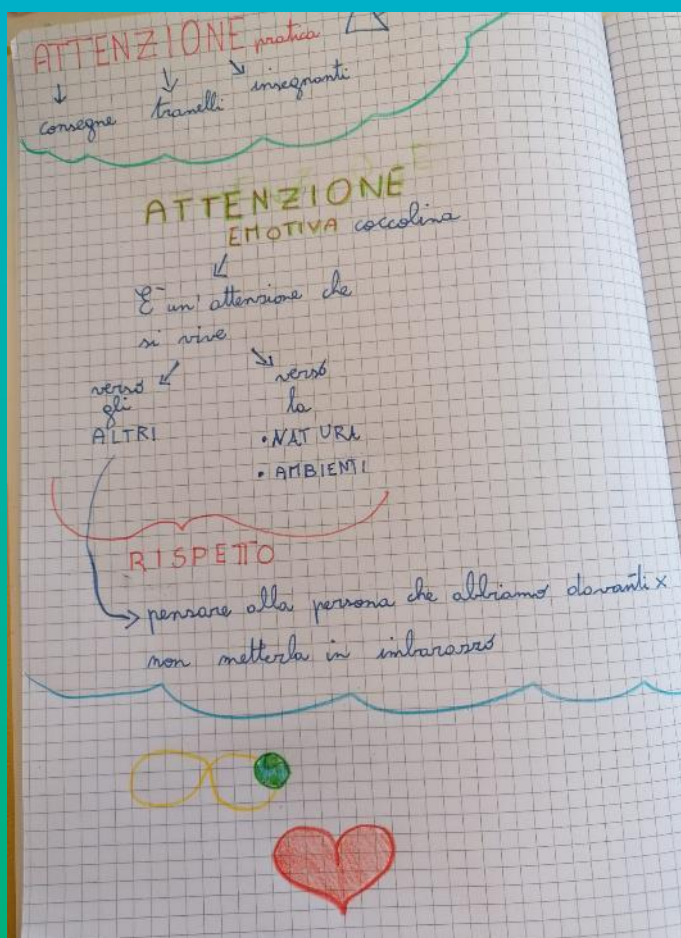 ATTENZIONE pratica
consegne tranelli insegnanti
ATTENZIONE
EMOTIVA coccolina
È un' attenzione che
si vive
verso
gli
ALTRI
verso
la
• NATURA
• AMBIENTI
RISPETTO
pensare alla persona che abbiamo davanti x
non metterla in imbarazzo